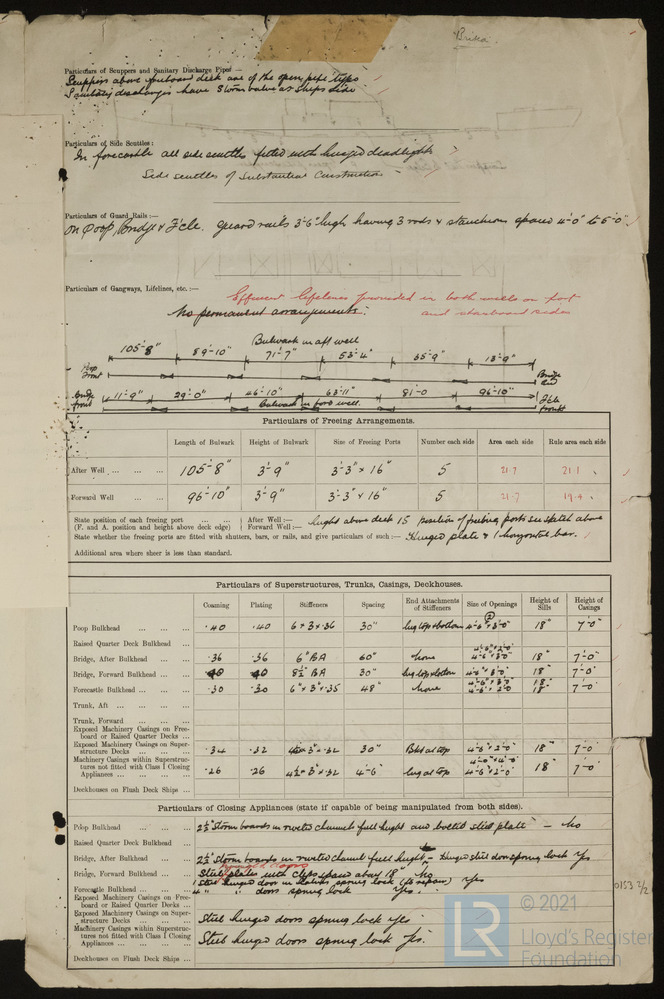 Particulars of Scuppers and Sanitary Discharge Pipes —
Scuppers above freeboard deck are of the open pipe type
Sanitary discharges have storm valve at ships side
Particulars of Side Scuttles :—
In forecastle all side scuttles fitted with hinged deadlights
Side scuttles of substantial construction
Particulars of Guard Rails :—
On Poop, Bridge & F'cle. guard rails 3'-6" high having 3 rods & stanchions spaced 4'-0" to 5'-0".
Particulars of Gangways, Lifelines, etc. :—
Efficient lifelines provided in both wells on port
and starboard sides
No permanent arrangements.
Bulwark in aft well
105'-8" 89'-10" 71'-7" 53'-4" 35'-9" 18'-9"
Poop front Bridge end
Bridge front 11'-9" 29'-0" 46'-10" 63'-11" 81'-0 96'-10" F'cle front
Bulwark in ford well.
Particulars of Freeing Arrangements.
Length of Bulwark Height of Bulwark Size of Freeing Ports Number each side Area each side Rule area each side
After Well ... ... ... 105'-8" 3'-9" 3'-3" × 16" 5 21.7 21.1
Forward Well ... ... 96'-10" 3'-9" 3'-3" × 16" 5 21.7 19.4
State position of each freeing port ... ... ... After Well :— height above deck 15 Position of freeing ports see sketch above
(F. and A. position and height above deck edge) Forward Well :—
State whether the freeing ports are fitted with shutters, bars, or rails, and give particulars of such :— Hinged plate & 1 horizontal bar.
Additional area where sheer is less than standard.
Particulars of Superstructures, Trunks, Casings, Deckhouses.
Coaming Plating Stiffeners Spacing End Attachments of Stiffeners Size of Openings Height of Sills Height of Casings
Poop Bulkhead ... ... ... .40 .40 6 × 3 × .36 30" lug top & bottom 4'-6" × 3'-0" 18" 7'-0"
Raised Quarter Deck Bulkhead ...
Bridge, After Bulkhead ... ... .36 .36 6" BA 60" None 4'-6" × 2'-0" 4'-6" × 3'-0" 18" 7'-0"
Bridge, Forward Bulkhead ... .40 .40 8½" BA 30" lug top & bottom 4'-6" × 3'-0" 18" 7'-0"
Forecastle Bulkhead ... ... .30 .30 6" × 3" × .35 48" None 4'-6" × 2'-0 18" 7'-0
Trunk, Aft ... ... ... ...
Trunk, Forward ... ... ...
Exposed Machinery Casings on Freeboard or Raised Quarter Decks ...
Exposed Machinery Casings on Superstructure Decks ... ... ... .34 .32 × 3" × .32 30" Bkts at top 4'-6" × 2'-0" 18" 7'-0
Machinery Casings within Superstructures not fitted with Class I Closing Appliances ... ... ... .26 .26 4½ × 3" × .32 4'-6" lug at top 4'-6" × 2'-0" 18" 7'-0"
Deckhouses on Flush Deck Ships ...
Particulars of Closing Appliances (state if capable of being manipulated from both sides).
Poop Bulkhead ... ... ... 2½" Storm boards in riveted channels full height and bolted steel plate — No
Raised Quarter Deck Bulkhead ...
Bridge, After Bulkhead ... ... 2½" Storm boards in riveted channel full height — Hinged steel door sprung lock yes
hinged doors
Bridge, Forward Bulkhead ... Steel plates with clips spaced about 18" No
1 steel hinged door sprung lock yes
Forecastle Bulkhead ... ... doors sprung lock yes.
Exposed Machinery Casings on Freeboard or Raised Quarter Decks ...
Exposed Machinery Casings on Superstructure Decks ... ... ... Steel hinged doors sprung lock yes
Machinery Casings within Superstructures not fitted with Class I Closing Appliances ... ... ... Steel hinged doors sprung lock Yes.
Deckhouses on Flush Deck Ships ...
0153 2/2
© 2021
LR
Lloyd's Register
Foundation